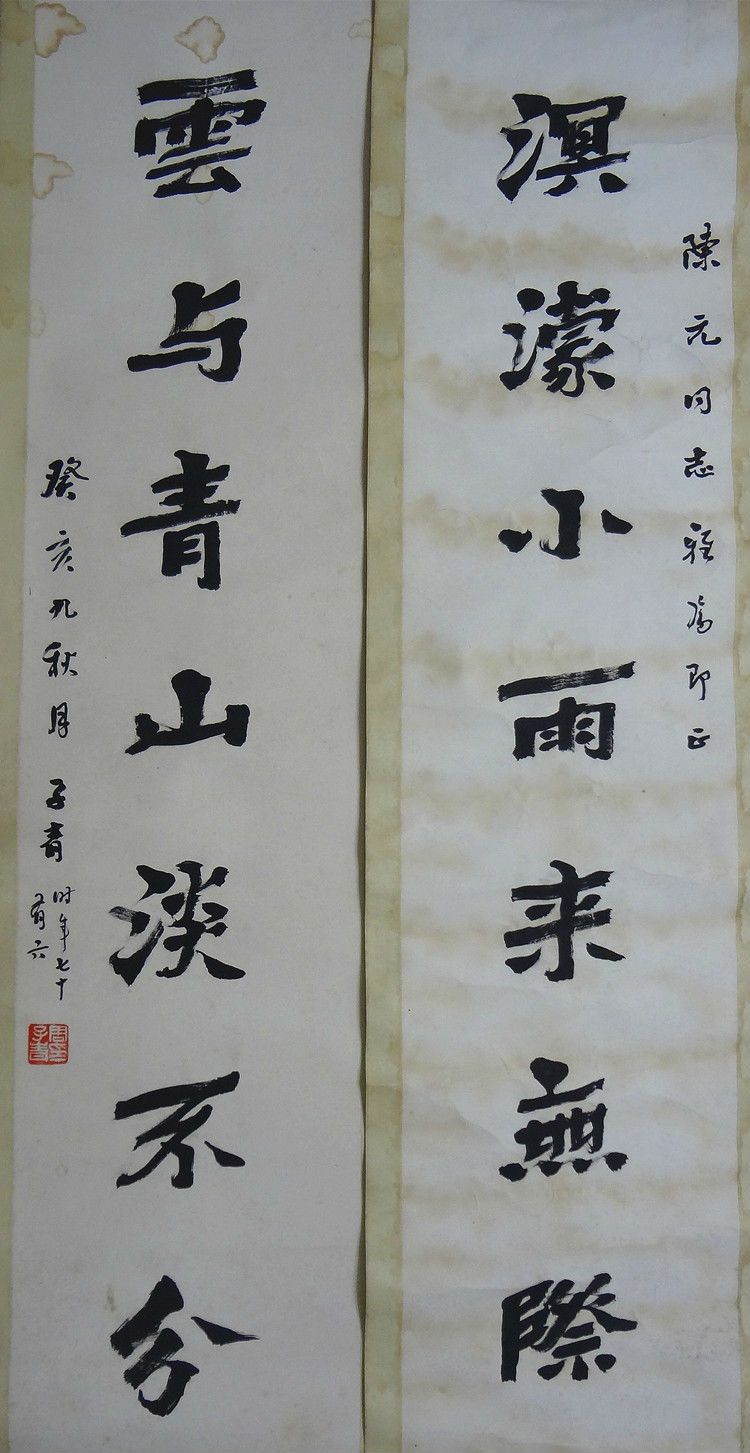 陳元同志雅属即正
溟濛小雨来無際
雲与青山淡不分
癸亥九秋月 子青
时年七十
有六